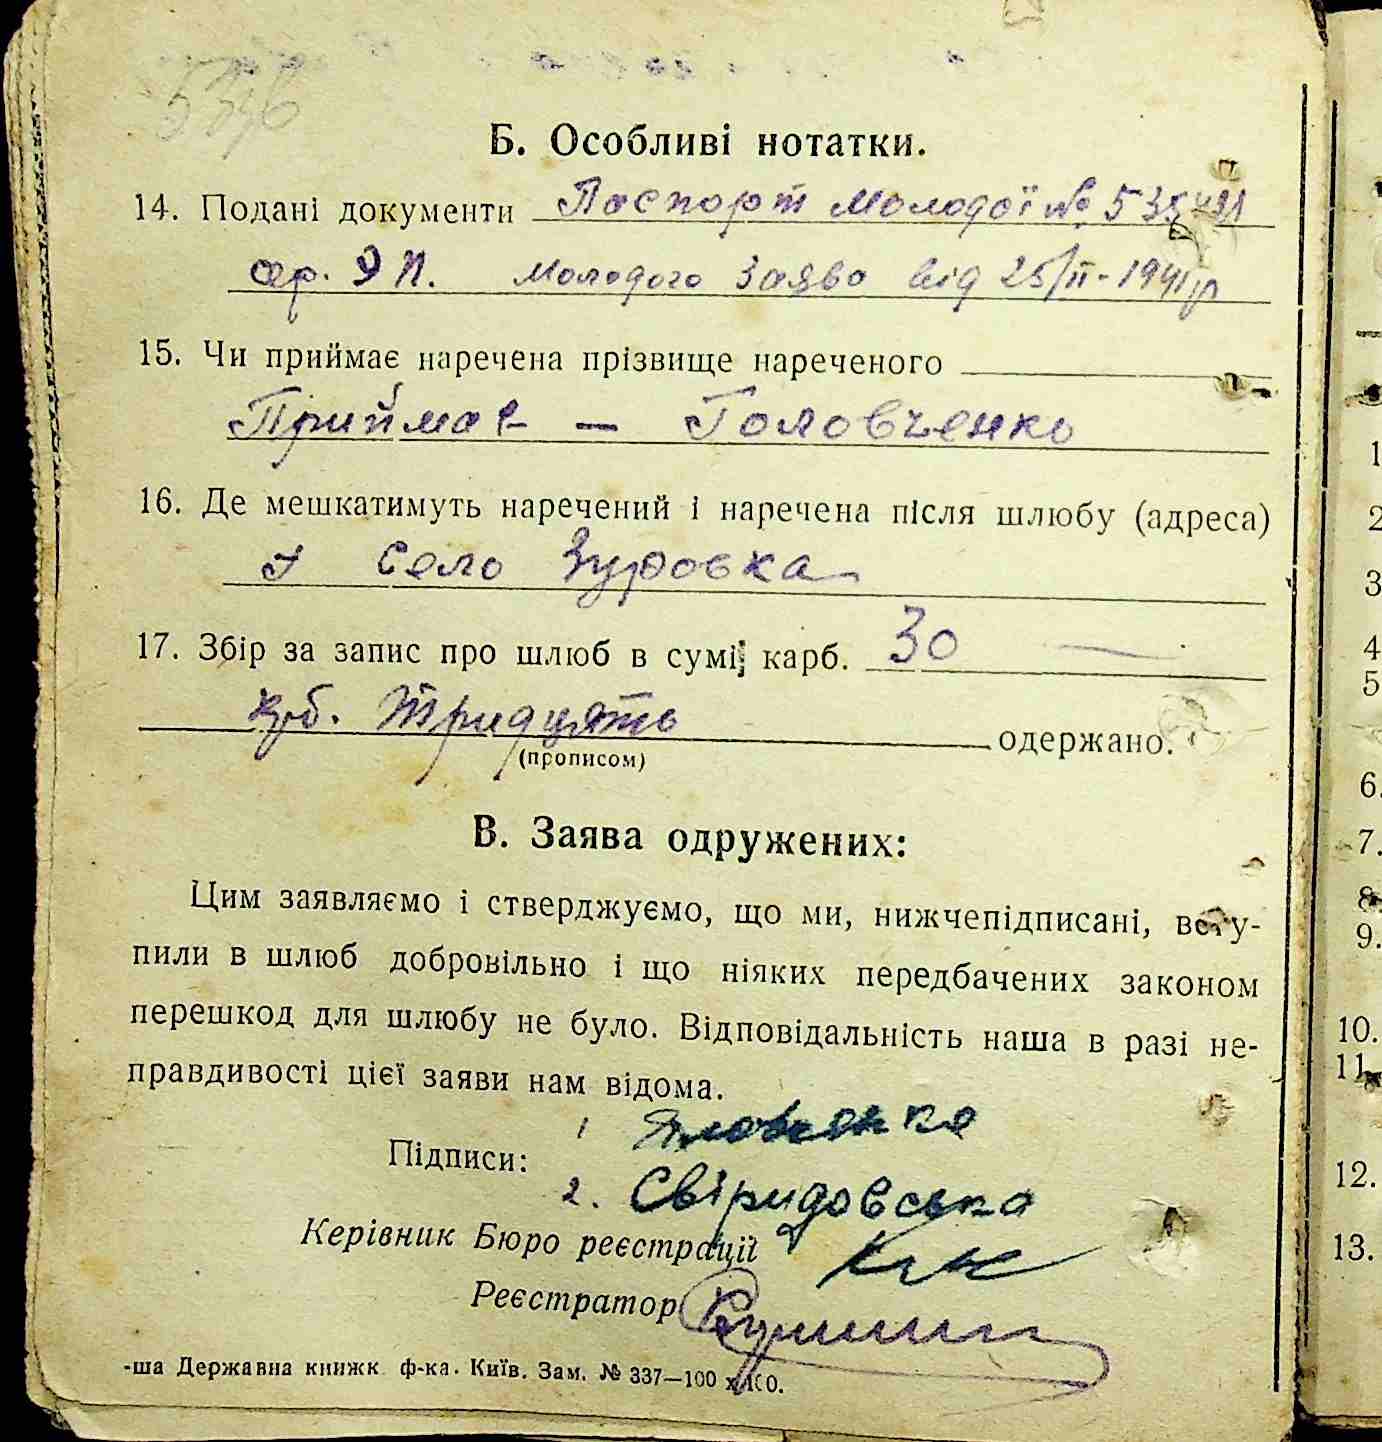 Б. Особливі нотатки.
14. Подані документи Паспорт Молодої № 535491
сер. ЭП. Молодого Заява від 25/II-1941 р
15. Чи приймає наречена прізвище нареченого
Приймає — Головченко
16. Де мешкатимуть наречений і наречена після шлюбу (адреса)
село Зуровка
17. Збір за запис про шлюб в сумі карб. 30
крб. Тридцять одержано.
(прописом)
В. Заява одружених:
Цим заявляємо і стверджуємо, що ми, нижчепідписані, всту-
пили в шлюб добровільно і що ніяких передбачених законом
перешкод для шлюбу не було. Відповідальність наша в разі не-
правдивості цієї заяви нам відома.
Підписи: 1
2. Свіридовська
Керівник Бюро реєстрації
Реєстратор
-ша Державна книжк. ф-ка. Київ. Зам. № 337—100 х 100.
1
2
3
4
5
6.
7.
8.
9.
10.
11.
12.
13.